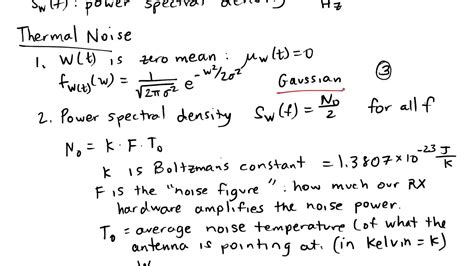 Sw(f): power spectral density Hz
Thermal Noise
1. W(t) is zero mean: μw(t)=0
fW(t)(w) = 1/√(2πσ²) e^(-w²/2σ²) Gaussian ③
2. Power spectral density Sw(f) = N₀/2 for all f
N₀ = k · F · T₀
k is Boltzman's constant = 1.3807×10⁻²³ J/K
F is the "noise figure": how much our RX
hardware amplifies the noise power.
T₀ = average noise temperature (of what the
antenna is pointing at. (in Kelvin = K)